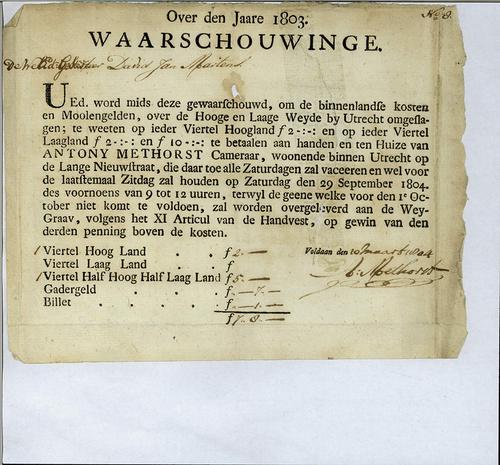 Over den Jaare 1803.
No. 8.
WAARSCHOUWINGE.
David Jan Martens
UEd. word mids deze gewaarſchouwd, om de binnenlandſe koſten
en Moolengelden, over de Hooge en Laage Weyde by Utrecht omgeſla-
gen; te weeten op ieder Viertel Hoogland f 2-:-: en op ieder Viertel
Laagland f 2-:-: en f 10-:-: te betaalen aan handen en ten Huize van
ANTONY METHORST Cameraar, woonende binnen Utrecht op
de Lange Nieuwſtraat, die daar toe alle Zaturdagen zal vaceeren en wel voor
de laatſtemaal Zitdag zal houden op Zaturdag den 29 September 1804.
des voornoens van 9 tot 12 uuren, terwyl de geene welke voor den 1e Oc-
tober niet komt te voldoen, zal worden overgeleverd aan de Wey-
Graav, volgens het XI Articul van de Handvest, op gewin van den
derden penning boven de koſten.
1 Viertel Hoog Land . . f 2-:-
Viertel Laag Land . . f
1 Viertel Half Hoog Half Laag Land f 5-:-
Gadergeld . . . . f -:- 7.-
Billet . . . . . f -:- 1.-
f 7.8.-
Voldaan den 10 maart 1804
A: Methorst